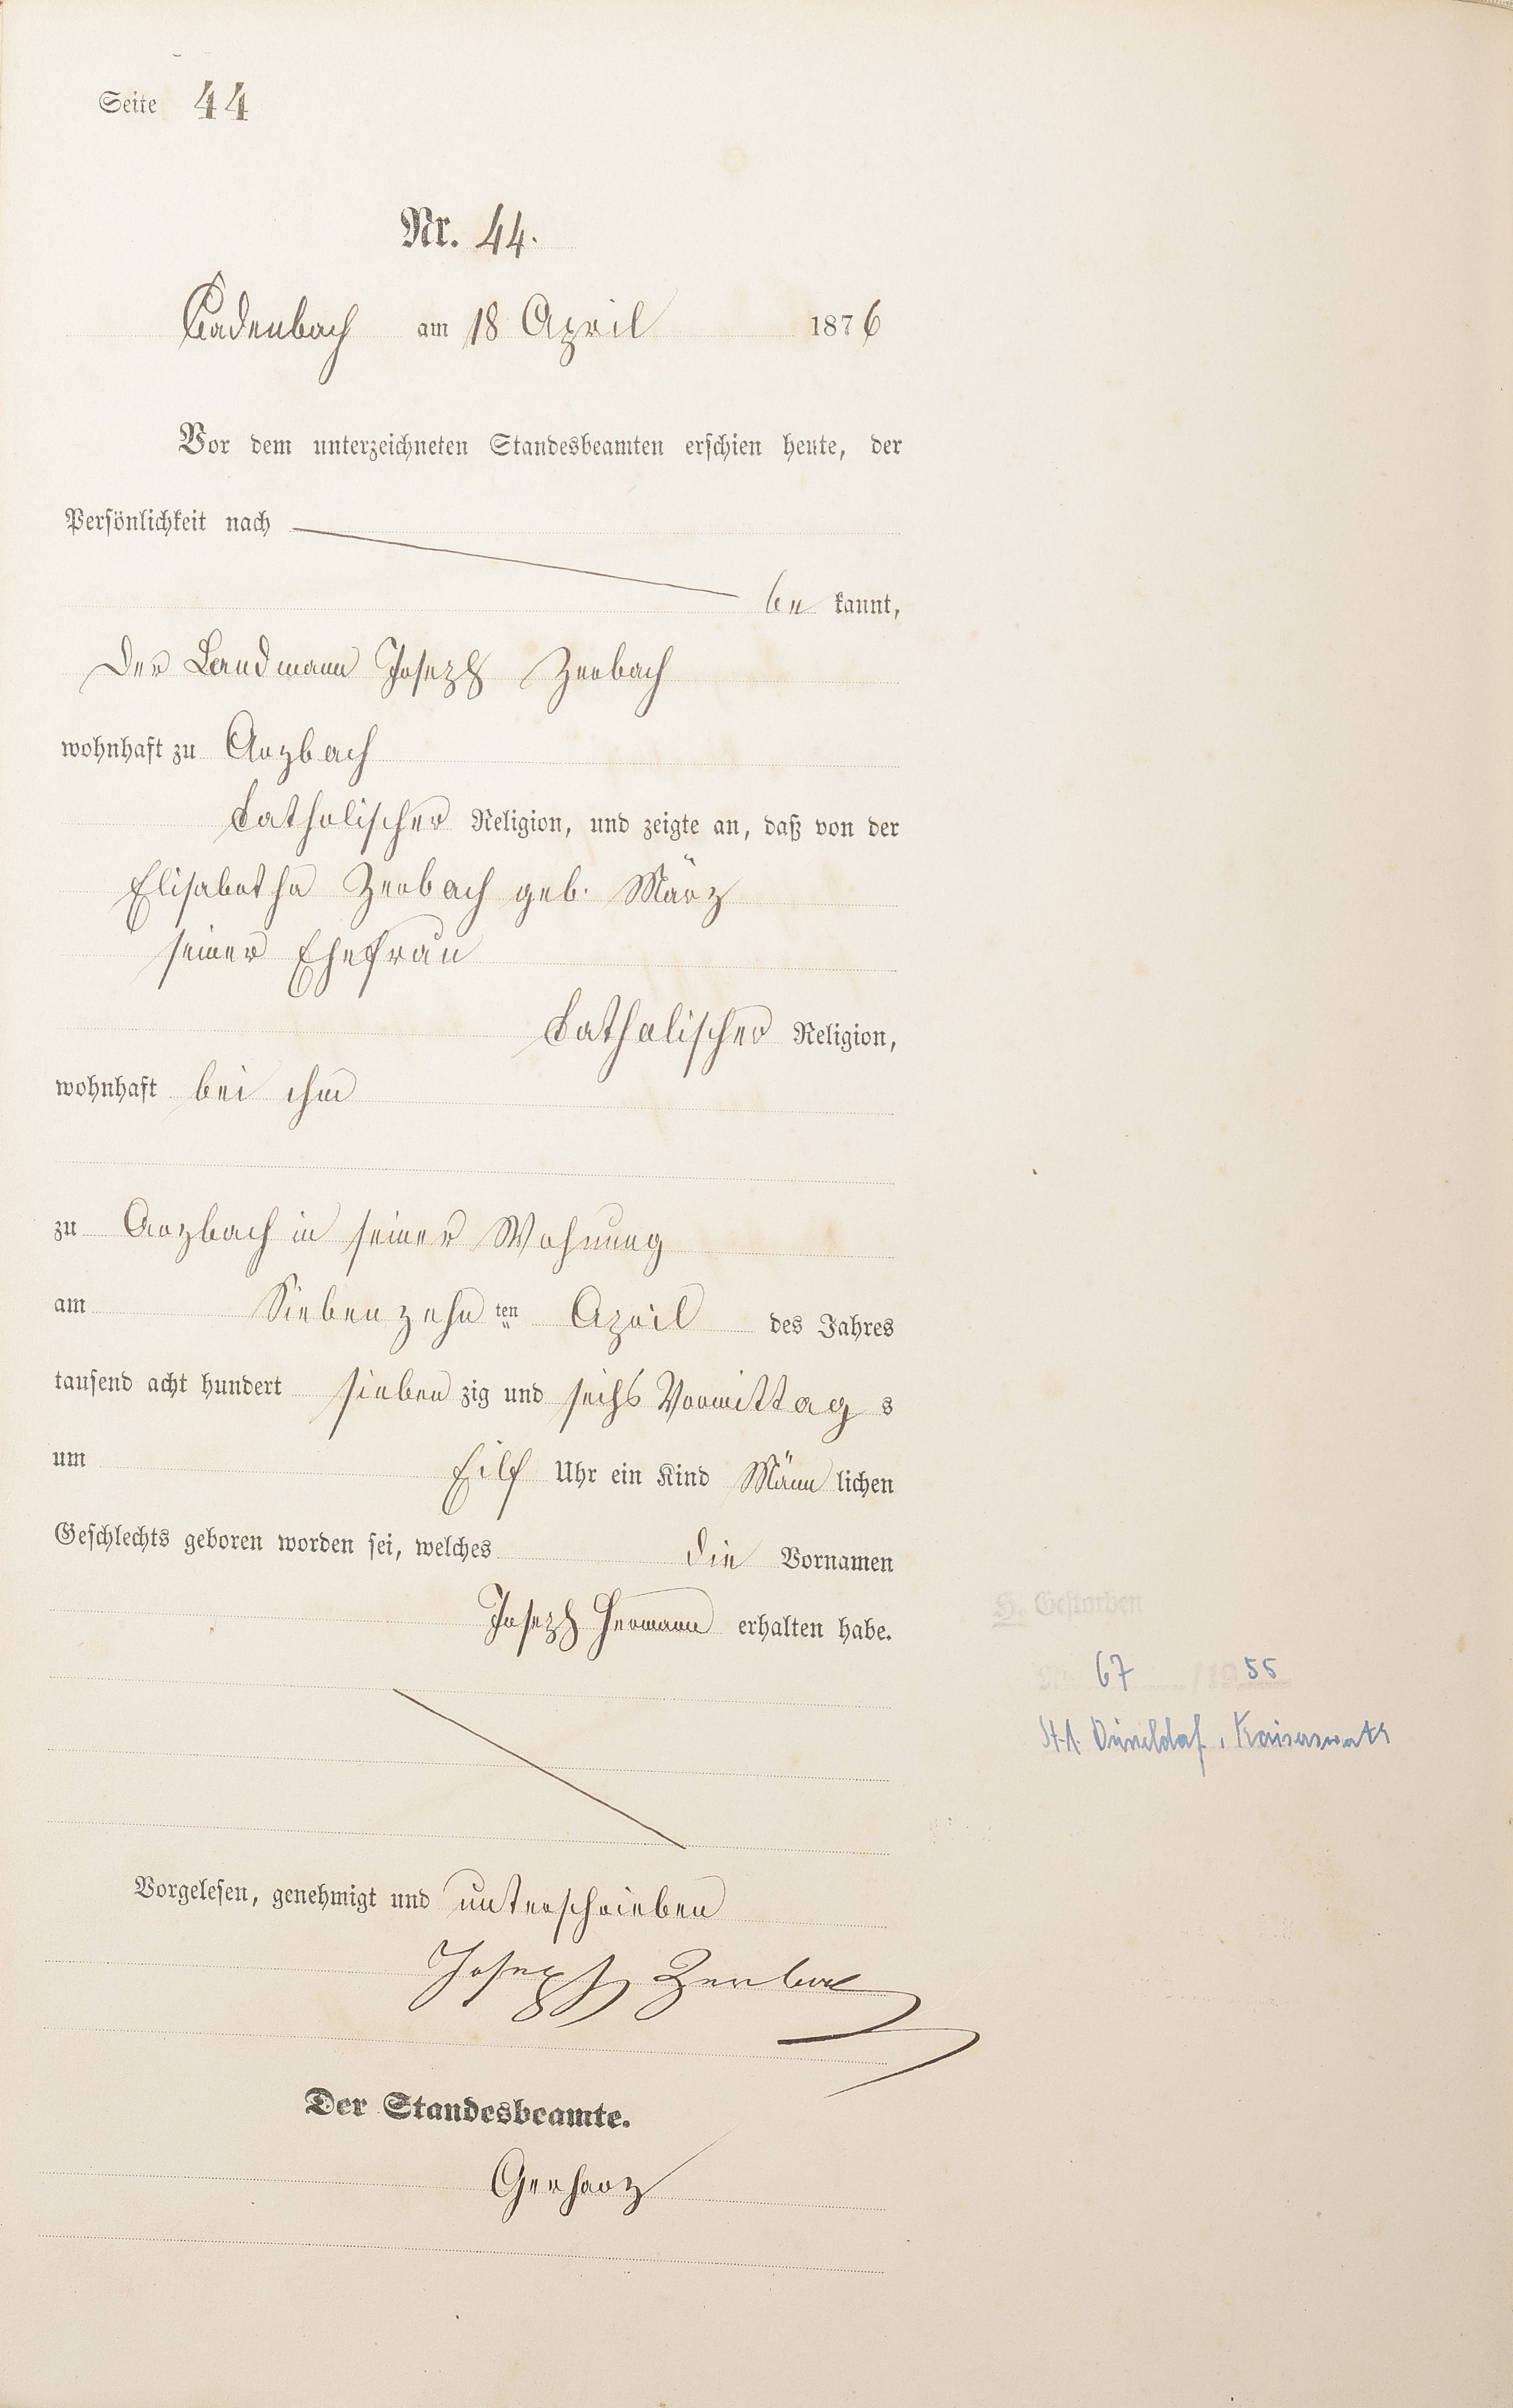 Seite 44
Nr. 44.
Cadenbach am 18 April 1876
Vor dem unterzeichneten Standesbeamten erschien heute, der
Persönlichkeit nach
be kannt,
Der Landmann Joseph Zerbach
wohnhaft zu Arzbach
katholischer Religion, und zeigte an, daß von der
Elisabetha Zerbach geb. März
seiner Ehefrau
katholischer Religion,
wohnhaft bei ihm
zu Arzbach in seiner Wohnung
am Siebenzehn ten April des Jahres
tausend acht hundert sieben zig und sechs Vormittag s
um Eilf Uhr ein Kind Männ lichen
Geschlechts geboren worden sei, welches die Vornamen
Joseph Hermann erhalten habe.
H. Gestorben
Nr. 67 / 1955
St.A. Düsseldorf, Kaiserswerth
Vorgelesen, genehmigt und unterschrieben
Joseph Zerbach
Der Standesbeamte.
Gerharz